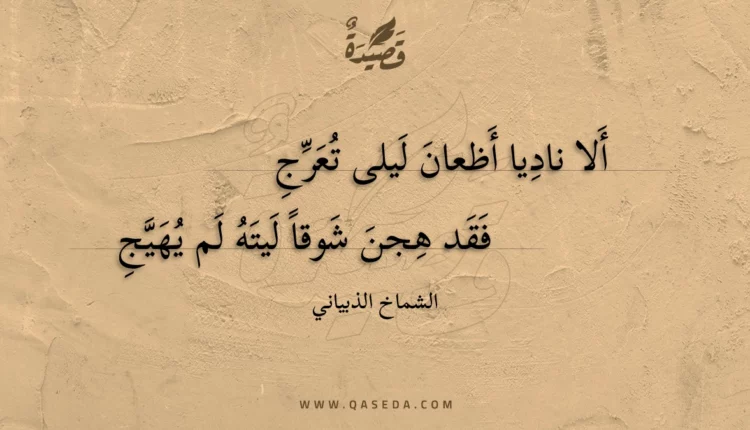 قَصِيدَةٌ
أَلا نادِيا أَظعانَ لَيلى تُعَرِّجِ
فَقَد هِجنَ شَوقاً لَيتَهُ لَم يُهَيَّجِ
الشماخ الذبياني
WWW.QASEDA.COM